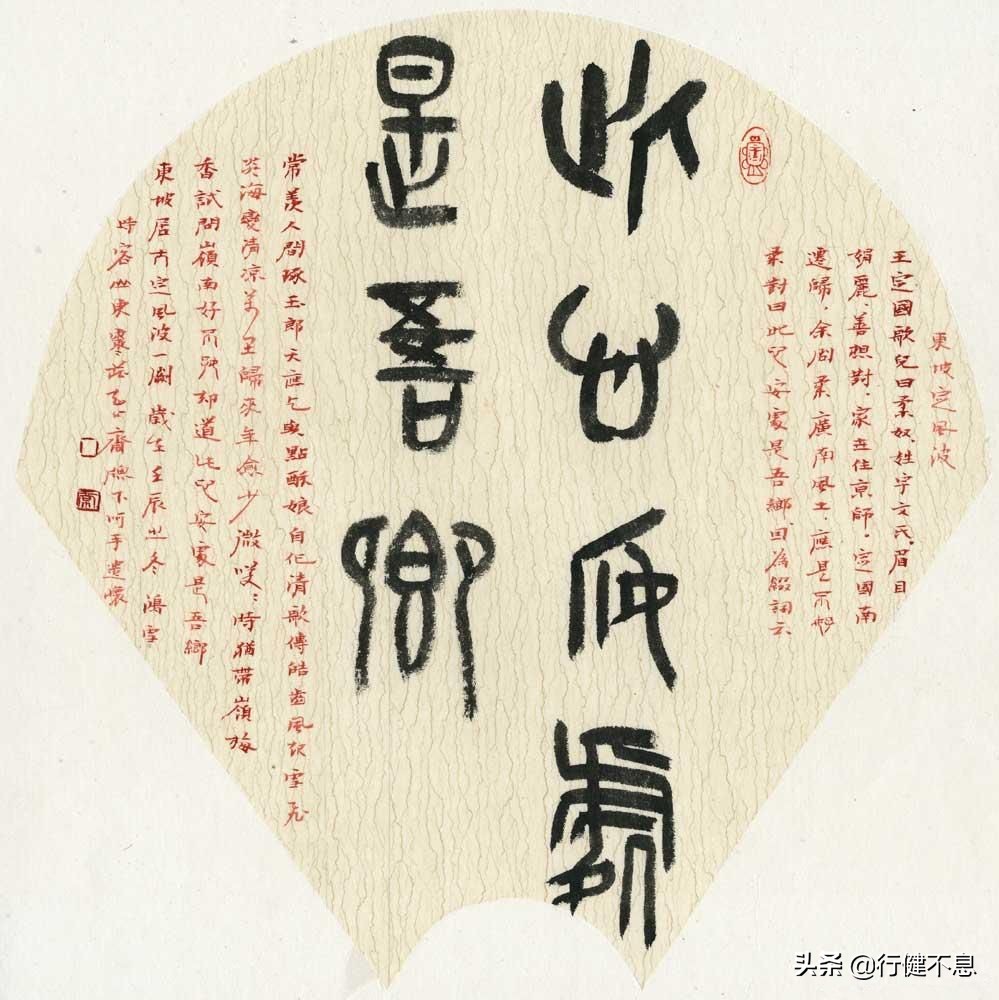 東坡定風波
王定國歌兒曰柔奴、姓宇文氏、眉目
娟麗、善應對、家世住京師。定國南
遷歸、余問柔、廣南風土、應是不好
柔對曰此心安處是吾鄉、因為綴詞云
此心安處
是吾鄉
常羨人間琢玉郎天應乞與點酥娘自作清歌傳皓齒風起雪飛
炎海變清涼萬里歸來年愈少微笑〻時猶帶嶺梅
香試問嶺南好不好却道此心安處是吾鄉
東坡居士定風波一闋歲在壬辰之冬 鴻雪
時客山東 齋牕下呵手遣懷
头条 @行健不息